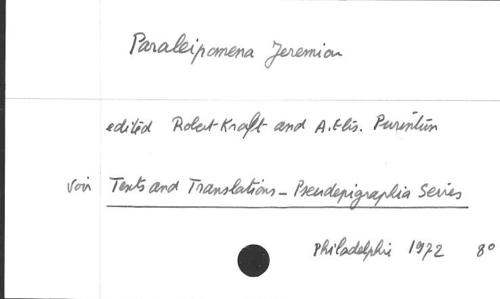 Paraleipomena Jeremiou
edited Robert Kraft and A.Elis. Purintun
voir Texts and Translations - Pseudepigrapha Series
Philadelphie 1972 8°